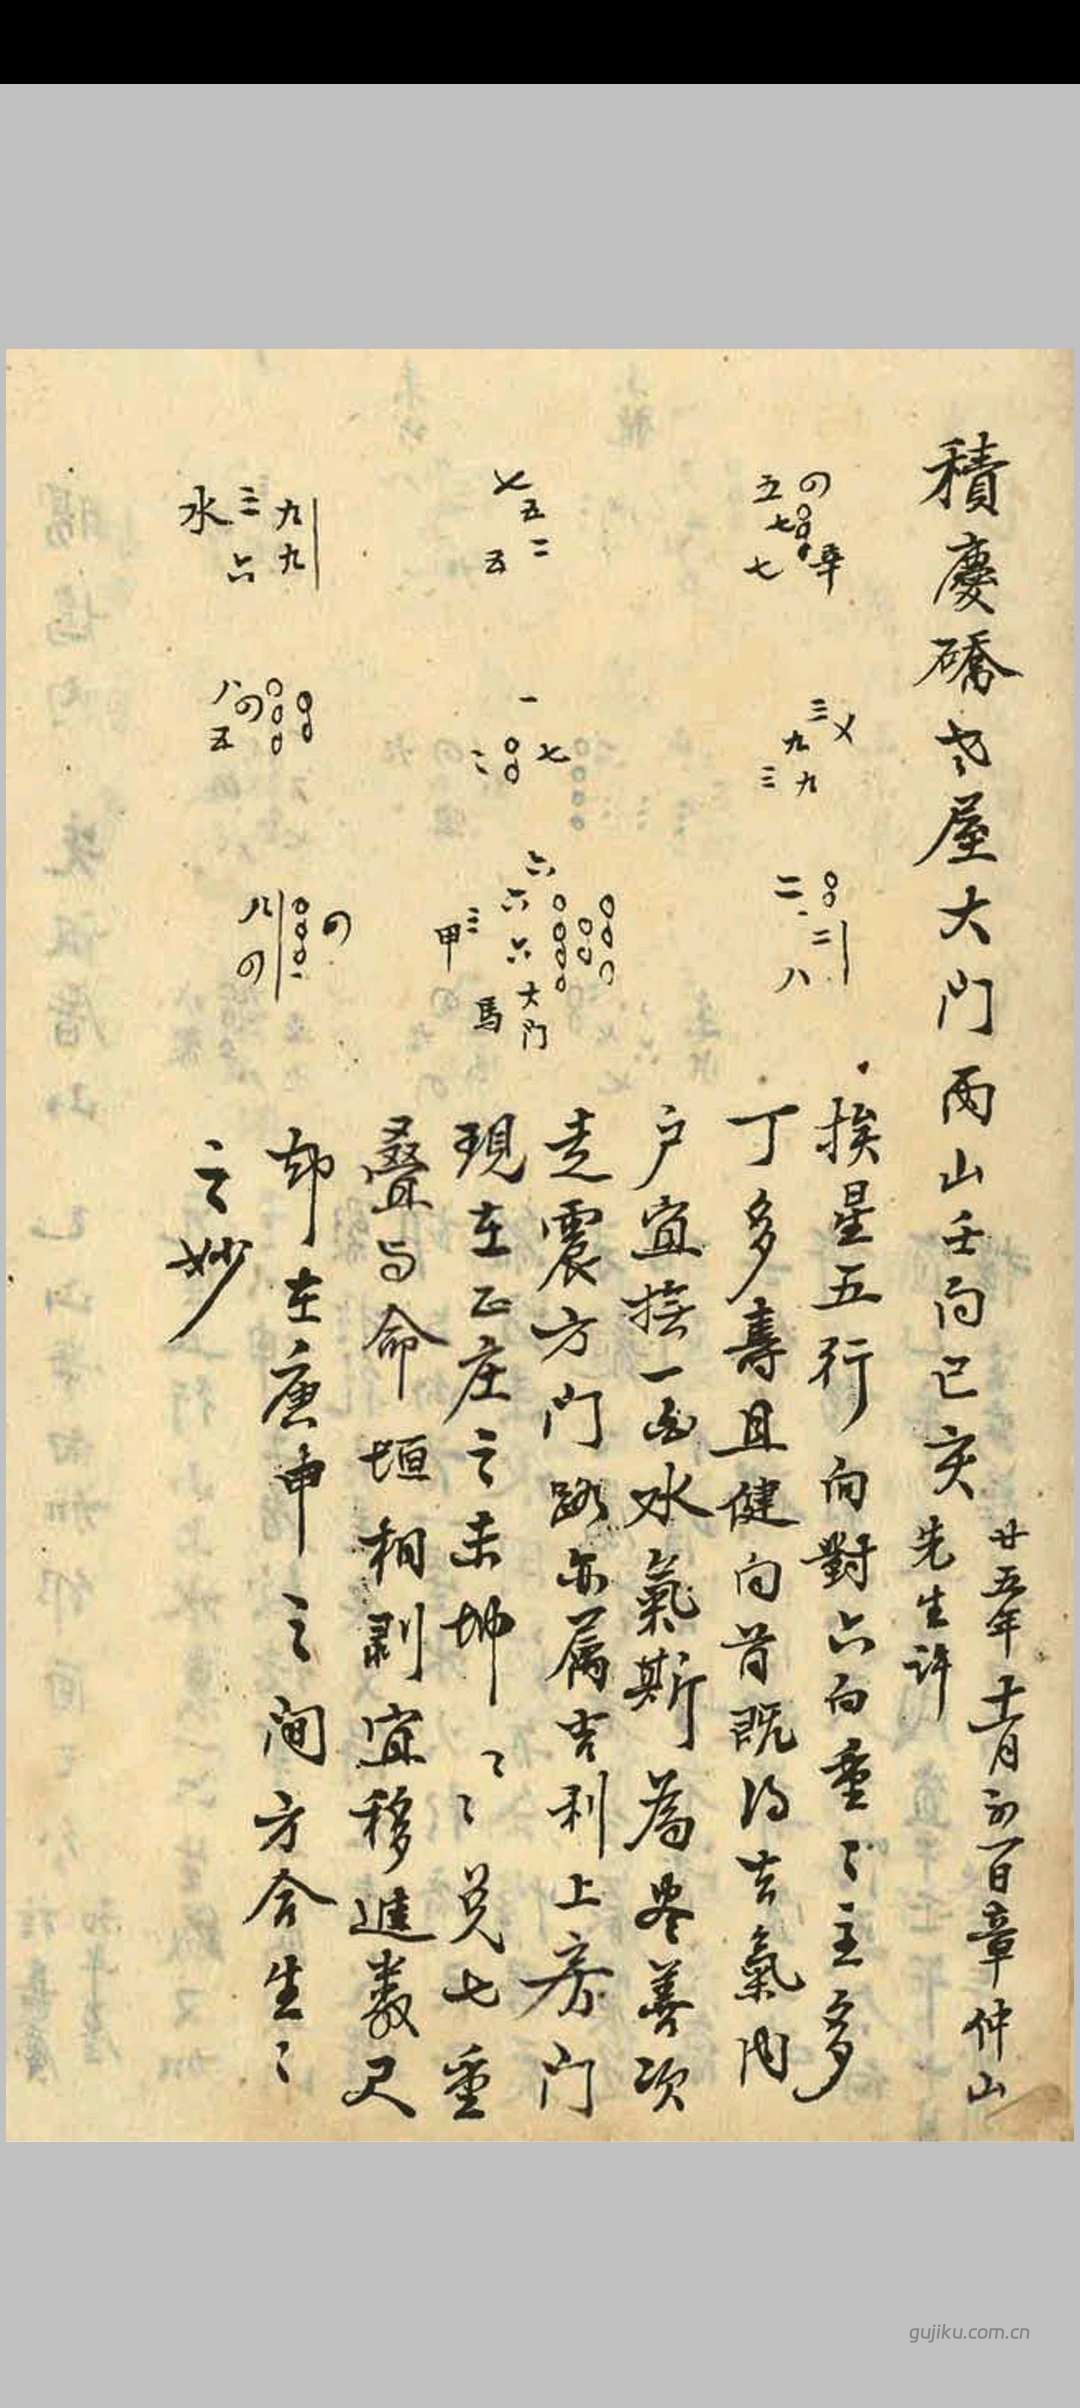 積慶橋老屋大門丙山壬向巳亥
廿五年十一月初一日章仲山
先生許
四
五
七
七
辛
三
九
三 九
二
二
八
五
二
五
一
二 七
六
六
六
三
甲
大門
馬
九
九
三
六
水
八
四
五
四
八
四
挨星五行向對六白重〻主多
丁多壽且健向首既得吉氣内
户宜接一白水氣斯為盡善次
走震方門路亦属吉利上房門
現在正庄之未坤〻〻兑七重
叠与命垣相剥宜移進数尺
却在庚申之间方合生〻
之妙
gujiku.com.cn